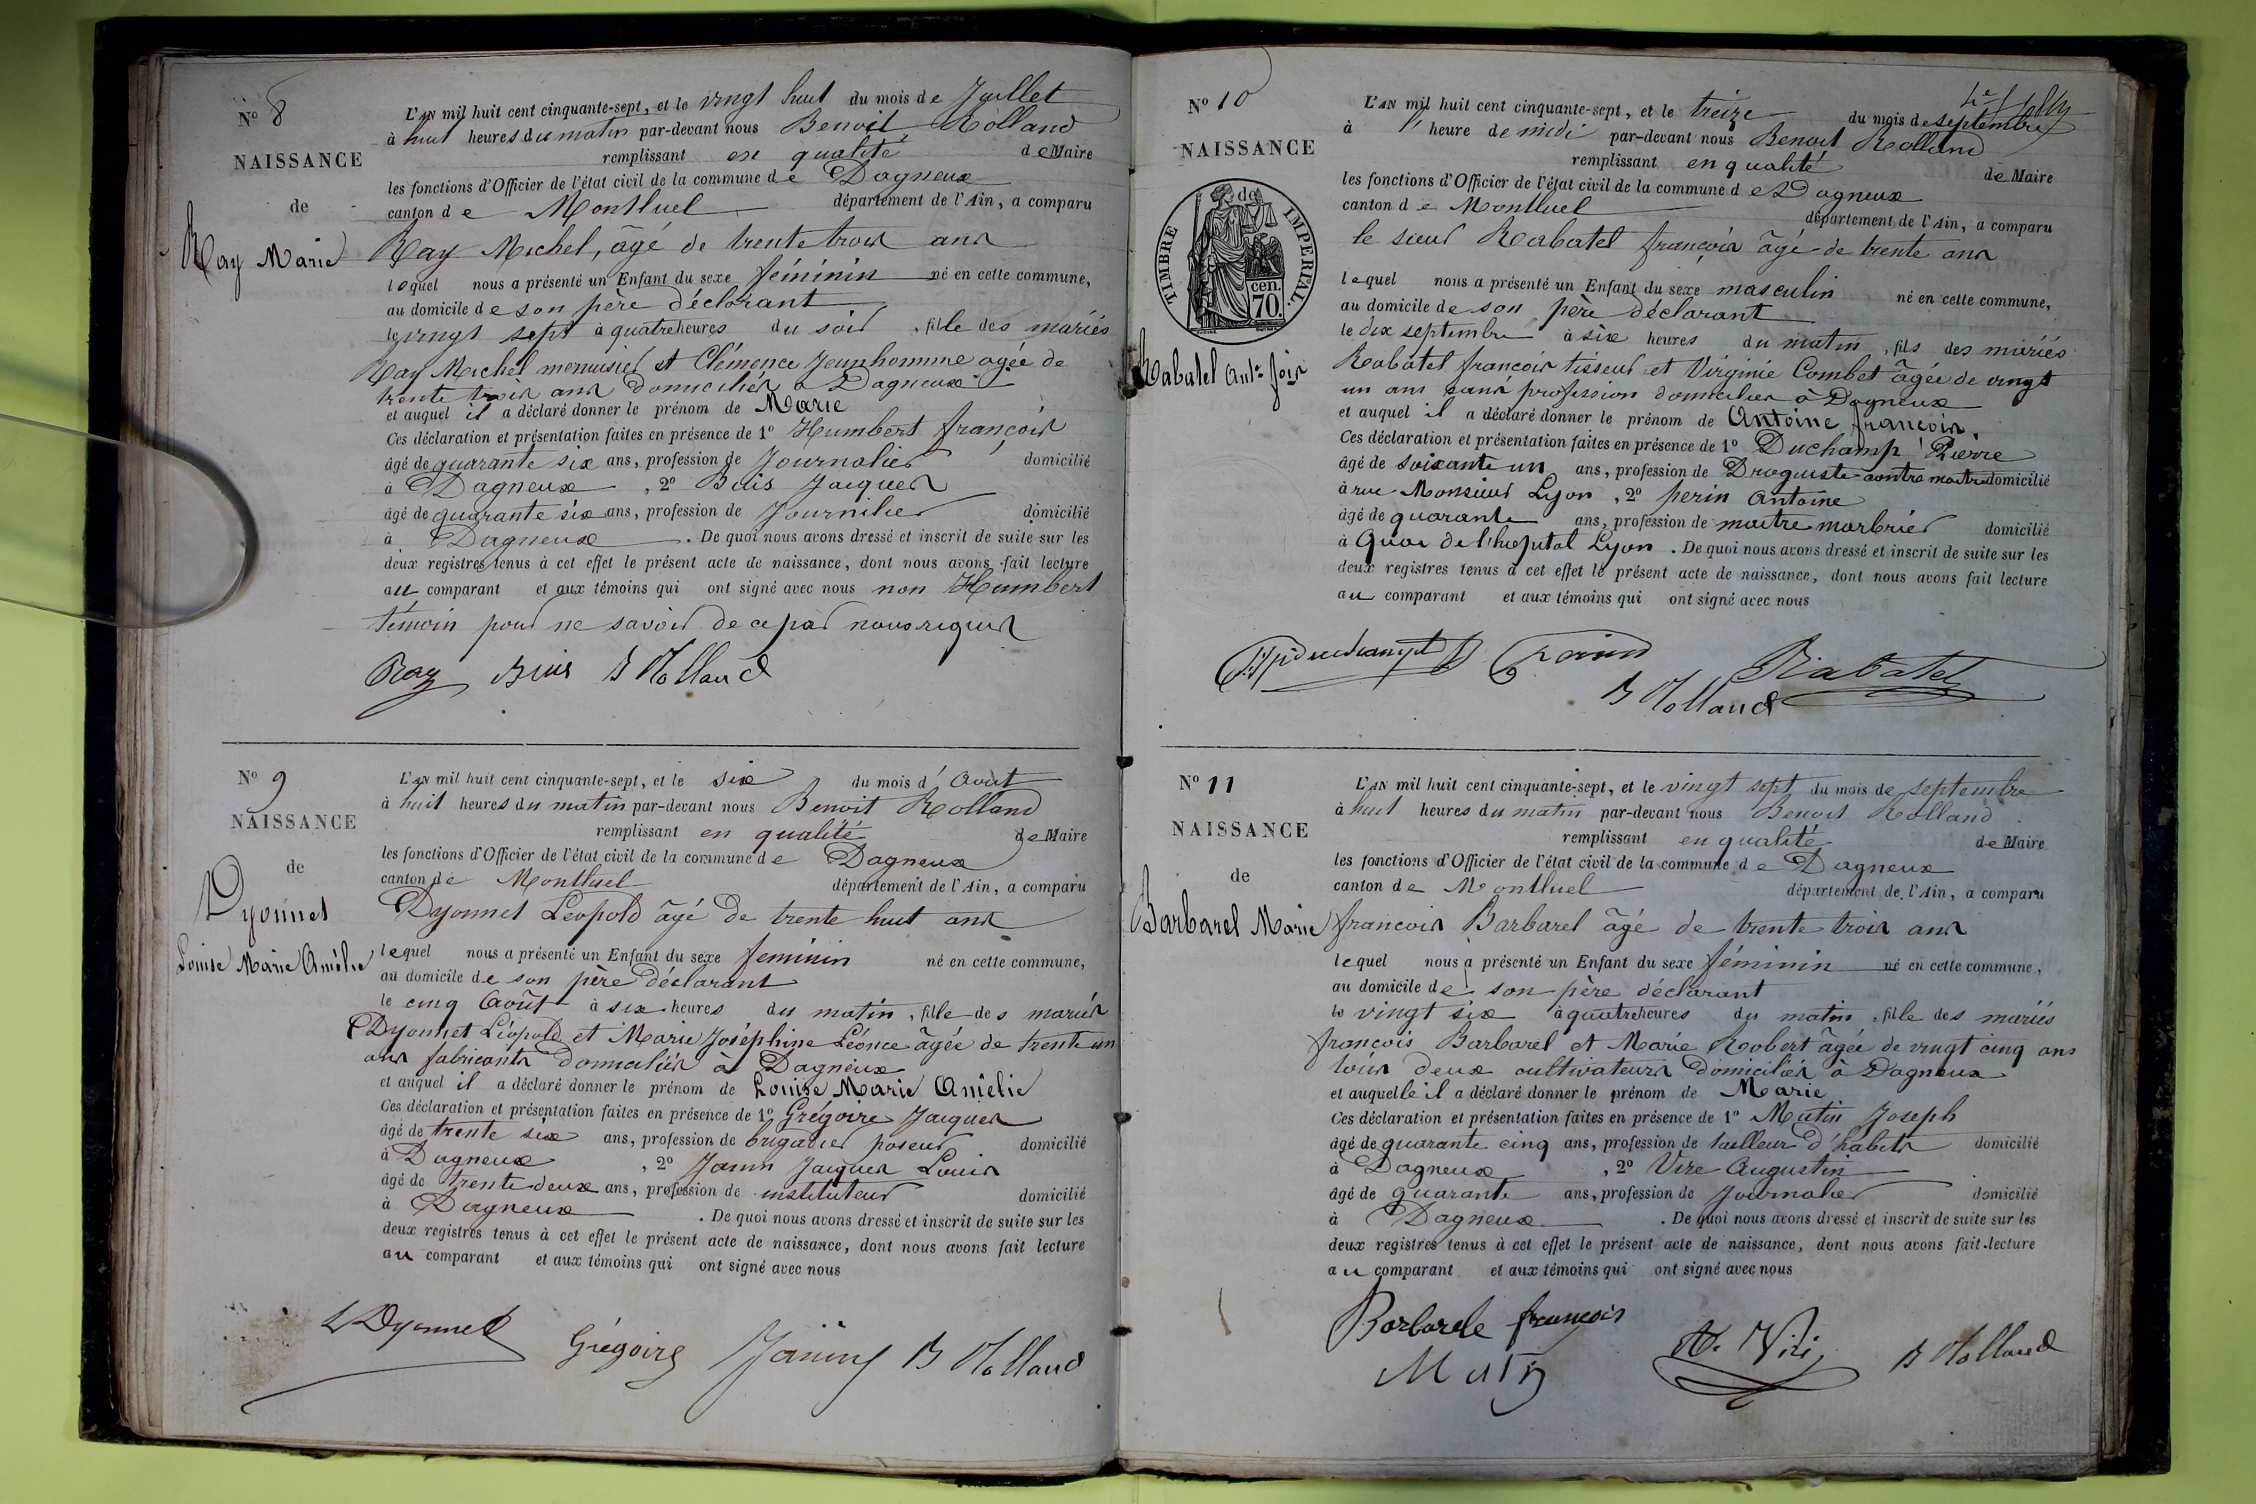 N° 8
NAISSANCE
de
Ray Marie
L'AN mil huit cent cinquante-sept, et le vingt huit du mois de Juillet
à huit heures du matin par-devant nous Benoit Rolland
remplissant en qualité de Maire
les fonctions d'Officier de l'état civil de la commune de Dagneux
canton de Montluel département de l'Ain, a comparu
Ray Michel, âgé de trente trois ans
lequel nous a présenté un Enfant du sexe féminin né en cette commune,
au domicile de son père déclarant
le vingt sept à quatre heures du soir, fille des mariés
Ray Michel menuisier et Clémence Jeunhomme agée de
trente trois ans domiciliés à Dagneux
et auquel il a déclaré donner le prénom de Marie
Ces déclaration et présentation faites en présence de 1° Humbert françois
âgé de quarante six ans, profession de Journalier domicilié
à Dagneux, 2° Buis Jacques
âgé de quarante six ans, profession de Journilier domicilié
à Dagneux. De quoi nous avons dressé et inscrit de suite sur les
deux registres tenus à cet effet le présent acte de naissance, dont nous avons fait lecture
au comparant et aux témoins qui ont signé avec nous non Humbert
témoin pour ne savoir de ce par nous requis
Ray Buis B Rolland
N° 9
NAISSANCE
de
Dyonnet
Louise Marie Amélie
L'AN mil huit cent cinquante-sept, et le six du mois d'Août
à huit heures du matin par-devant nous Benoit Rolland
remplissant en qualité de Maire
les fonctions d'Officier de l'état civil de la commune de Dagneux
canton de Montluel département de l'Ain, a comparu
Dyonnet Léopold âgé de trente huit ans
lequel nous a présenté un Enfant du sexe féminin né en cette commune,
au domicile de son père déclarant
le cinq Août à six heures du matin, fille des mariés
Dyonnet Léopold et Marie Joséphine Léonce âgée de trente un
ans fabricants domiciliés à Dagneux
et auquel il a déclaré donner le prénom de Louise Marie Amélie
Ces déclaration et présentation faites en présence de 1° Grégoire Jacques
âgé de trente six ans, profession de brigadier poseur domicilié
à Dagneux, 2° Janin Jacques Louis
âgé de trente deux ans, profession de instituteur domicilié
à Dagneux. De quoi nous avons dressé et inscrit de suite sur les
deux registres tenus à cet effet le présent acte de naissance, dont nous avons fait lecture
au comparant et aux témoins qui ont signé avec nous
L Dyonnet Grégoire Janin B Rolland
N° 10
NAISSANCE
de
TIMBRE IMPERIAL.
cen.
70.
Rabatel Ant.ne fois
L'AN mil huit cent cinquante-sept, et le treize du mois de septembre
à 1 heure de midi par-devant nous Benoit Rolland
remplissant en qualité de Maire
les fonctions d'Officier de l'état civil de la commune de Dagneux
canton de Montluel département de l'Ain, a comparu
le sieur Rabatel françois âgé de trente ans
lequel nous a présenté un Enfant du sexe masculin né en cette commune,
au domicile de son père déclarant
le dix septembre à six heures du matin, fils des mariés
Rabatel francois tisseur et Virginie Combet âgée de vingt
un ans sans profession domiciliés à Dagneux
et auquel il a déclaré donner le prénom de Antoine francois.
Ces déclaration et présentation faites en présence de 1° Duchamp Pierre
âgé de soixante un ans, profession de Droguiste contre maitre domicilié
à rue Monsieur Lyon, 2° perin Antoine
âgé de quarante ans, profession de maitre marbrier domicilié
à Quai de l'hopital Lyon. De quoi nous avons dressé et inscrit de suite sur les
deux registres tenus à cet effet le présent acte de naissance, dont nous avons fait lecture
au comparant et aux témoins qui ont signé avec nous
Rabatel
B Rolland
N° 11
NAISSANCE
de
Barbarel Marie
L'AN mil huit cent cinquante-sept, et le vingt sept du mois de septembre
à huit heures du matin par-devant nous Benoit Rolland
remplissant en qualité de Maire
les fonctions d'Officier de l'état civil de la commune de Dagneux
canton de Montluel département de l'Ain, a comparu
francois Barbarel âgé de trente trois ans
lequel nous a présenté un Enfant du sexe féminin né en cette commune,
au domicile de son père déclarant
le vingt six à quatre heures du matin, fille des mariés
françois Barbarel et Marie Robert âgée de vingt cinq ans
tous deux cultivateurs domiciliés à Dagneux
et auquelle il a déclaré donner le prénom de Marie
Ces déclaration et présentation faites en présence de 1° Mutin Joseph
âgé de quarante cinq ans, profession de tailleur d'habits domicilié
à Dagneux, 2° Vire Augustin
âgé de quarante ans, profession de Journalier domicilié
à Dagneux. De quoi nous avons dressé et inscrit de suite sur les
deux registres tenus à cet effet le présent acte de naissance, dont nous avons fait lecture
au comparant et aux témoins qui ont signé avec nous
Barbarele francois A. Viri B Rolland